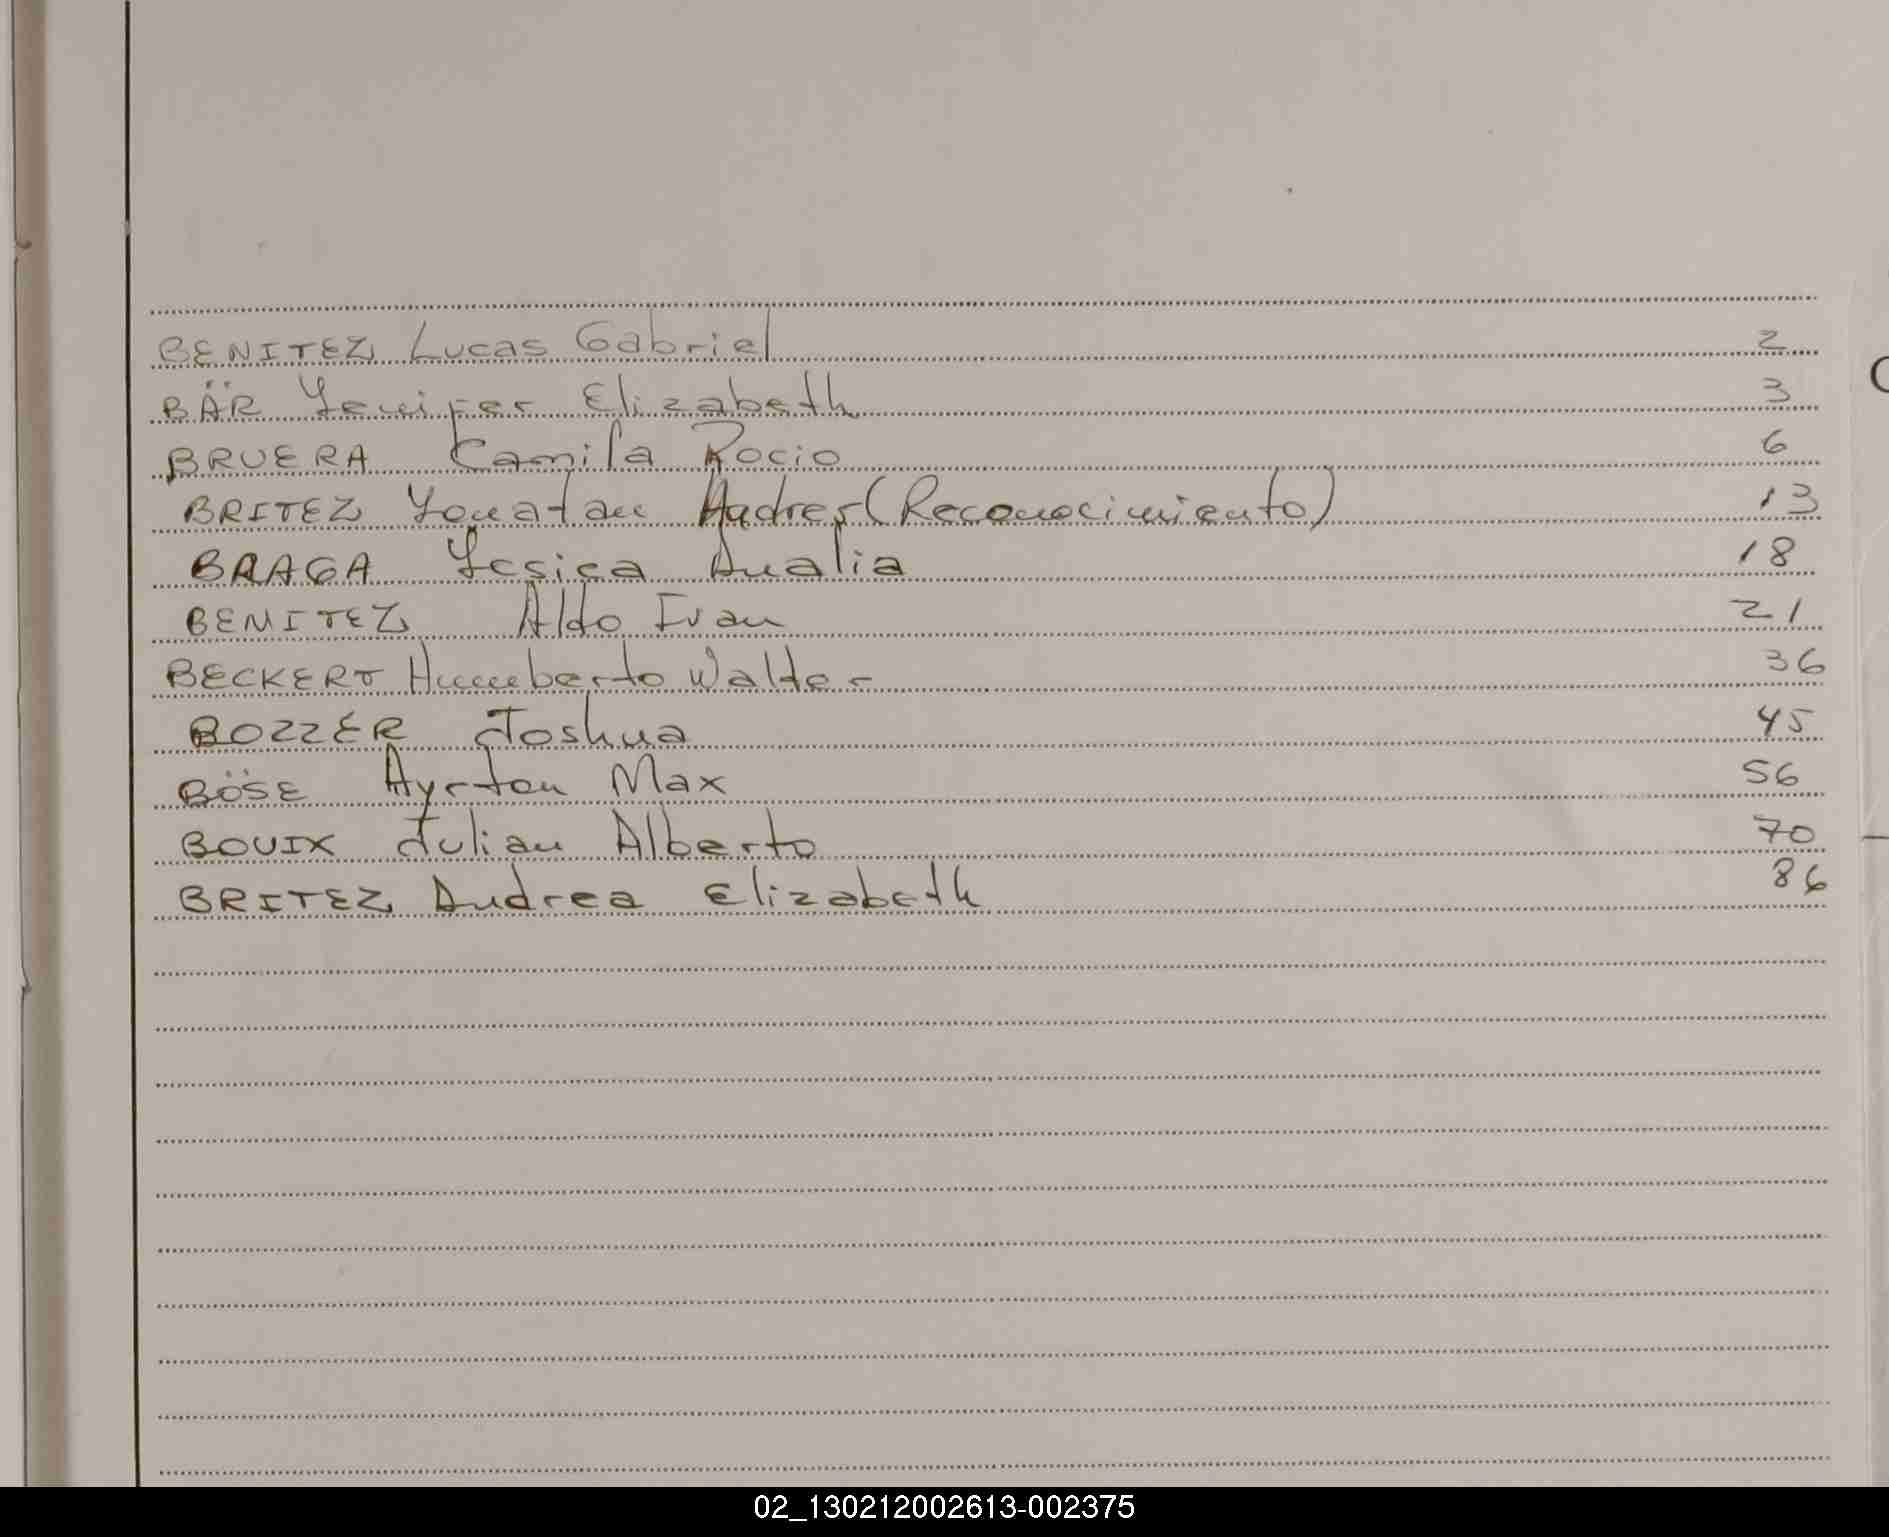 BENITEZ Lucas Gabriel 2
BÄR Yenifer Elizabeth 3
BRUERA Camila Rocio 6
BRITEZ Yonatan Andres (Reconocimiento) 13
BRAGA Yesica Analia 18
BENITEZ Aldo Ivan 21
BECKERT Humberto Walter 36
BOZZER Joshua 45
BÖSE Ayrton Max 56
BOUIX Julian Alberto 70
BRITEZ Andrea Elizabeth 86
02_130212002613-002375